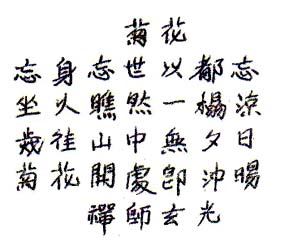 菊花
忘身忘世以都忘
坐久瞧然一榻涼
歲徃山中無夕日
菊花開處卽沖暘
禪師玄光